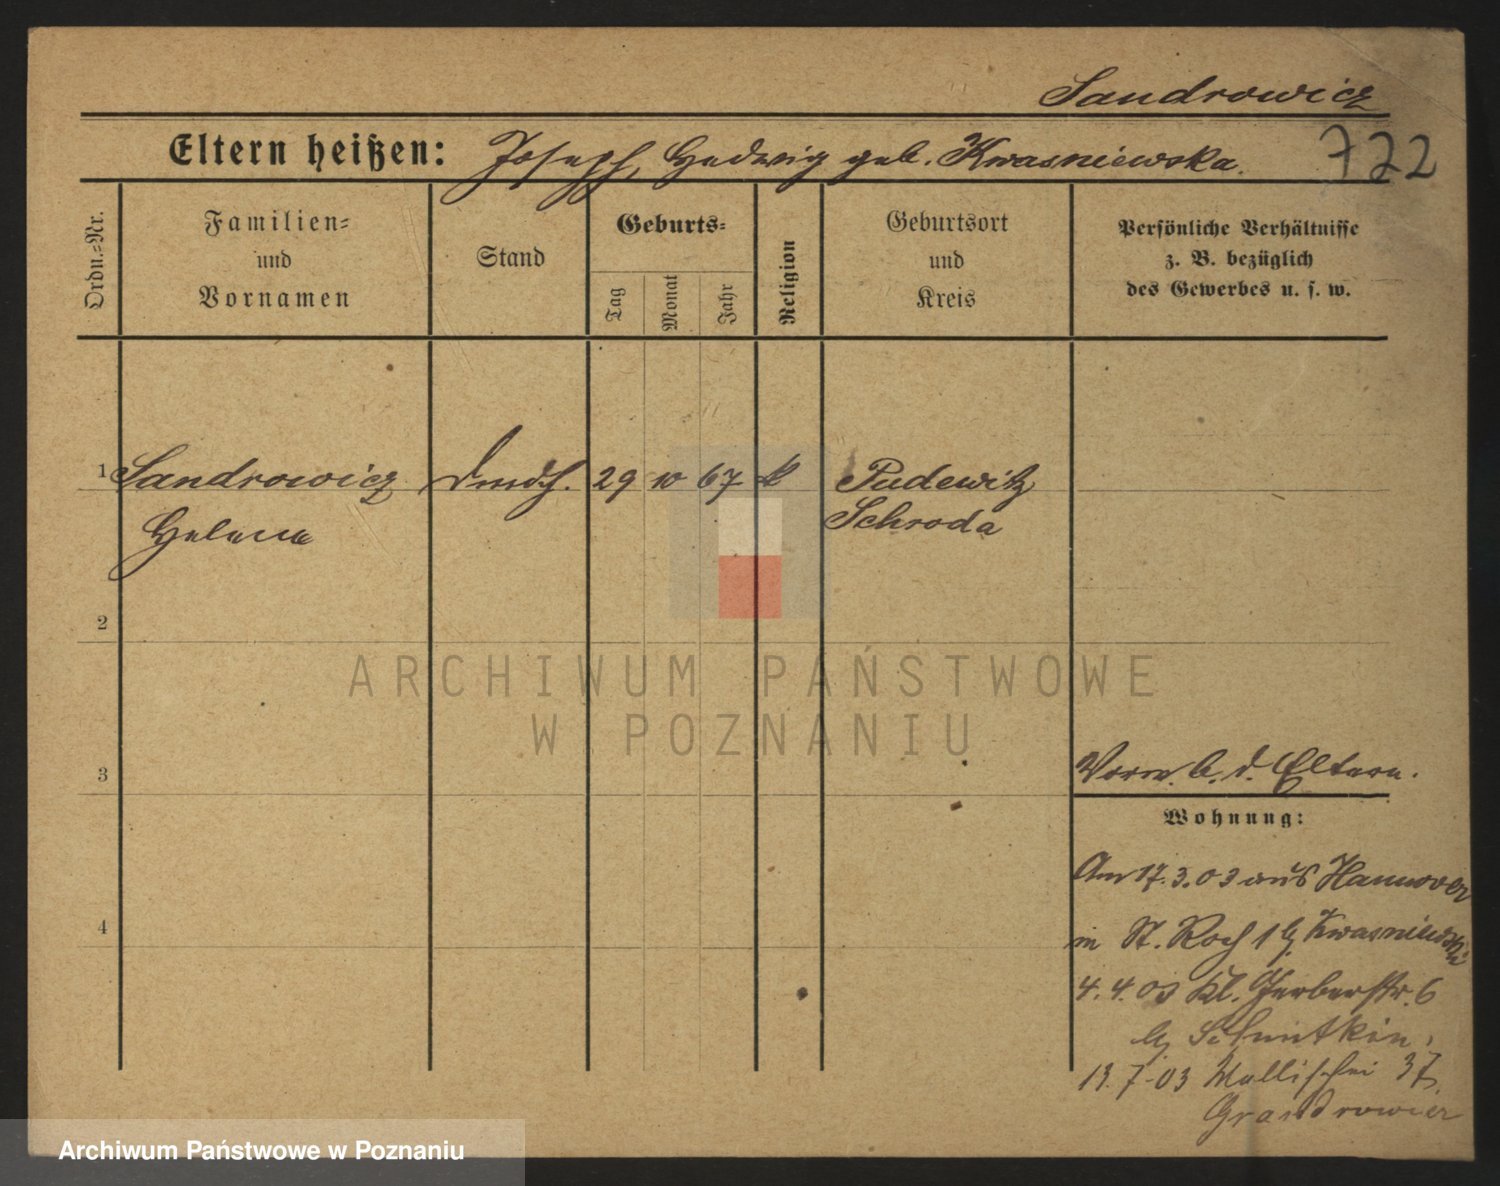 Sandrowicz
Eltern heißen: Joseph, Hedwig geb. Kwasniewska.
722
Ordn.=Nr.
Familien=
und
Vornamen
Stand
Geburts=
Tag
Monat
Jahr
Religion
Geburtsort
und
Kreis
Persönliche Verhältnisse
z. B. bezüglich
des Gewerbes u. s. w.
1 Sandrowicz 29 10 67 k Pudewitz
Helene Schroda
2
ARCHIWUM PAŃSTWOWE
W POZNANIU
3
Vorm. b. d. Eltern.
Wohnung:
Am 17.3.03 aus Hannover
in St. Roch 1 bj Kwasniewski
4
4.4.03 Kl. Gerberstr. 6
bj
13.7.03 Wallischei 37
Archiwum Państwowe w Poznaniu